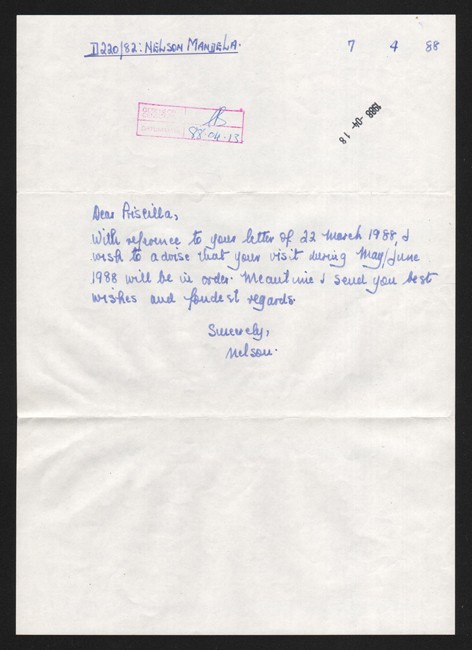 D220/82: NELSON MANDELA.
7 4 88
88-04-13
1988 -04- 18
Dear Priscilla,
With reference to your letter of 22 March 1988, I
wish to advise that your visit during May/June
1988 will be in order. Meantime I send you best
wishes and fondest regards.
Sincerely,
Nelson.